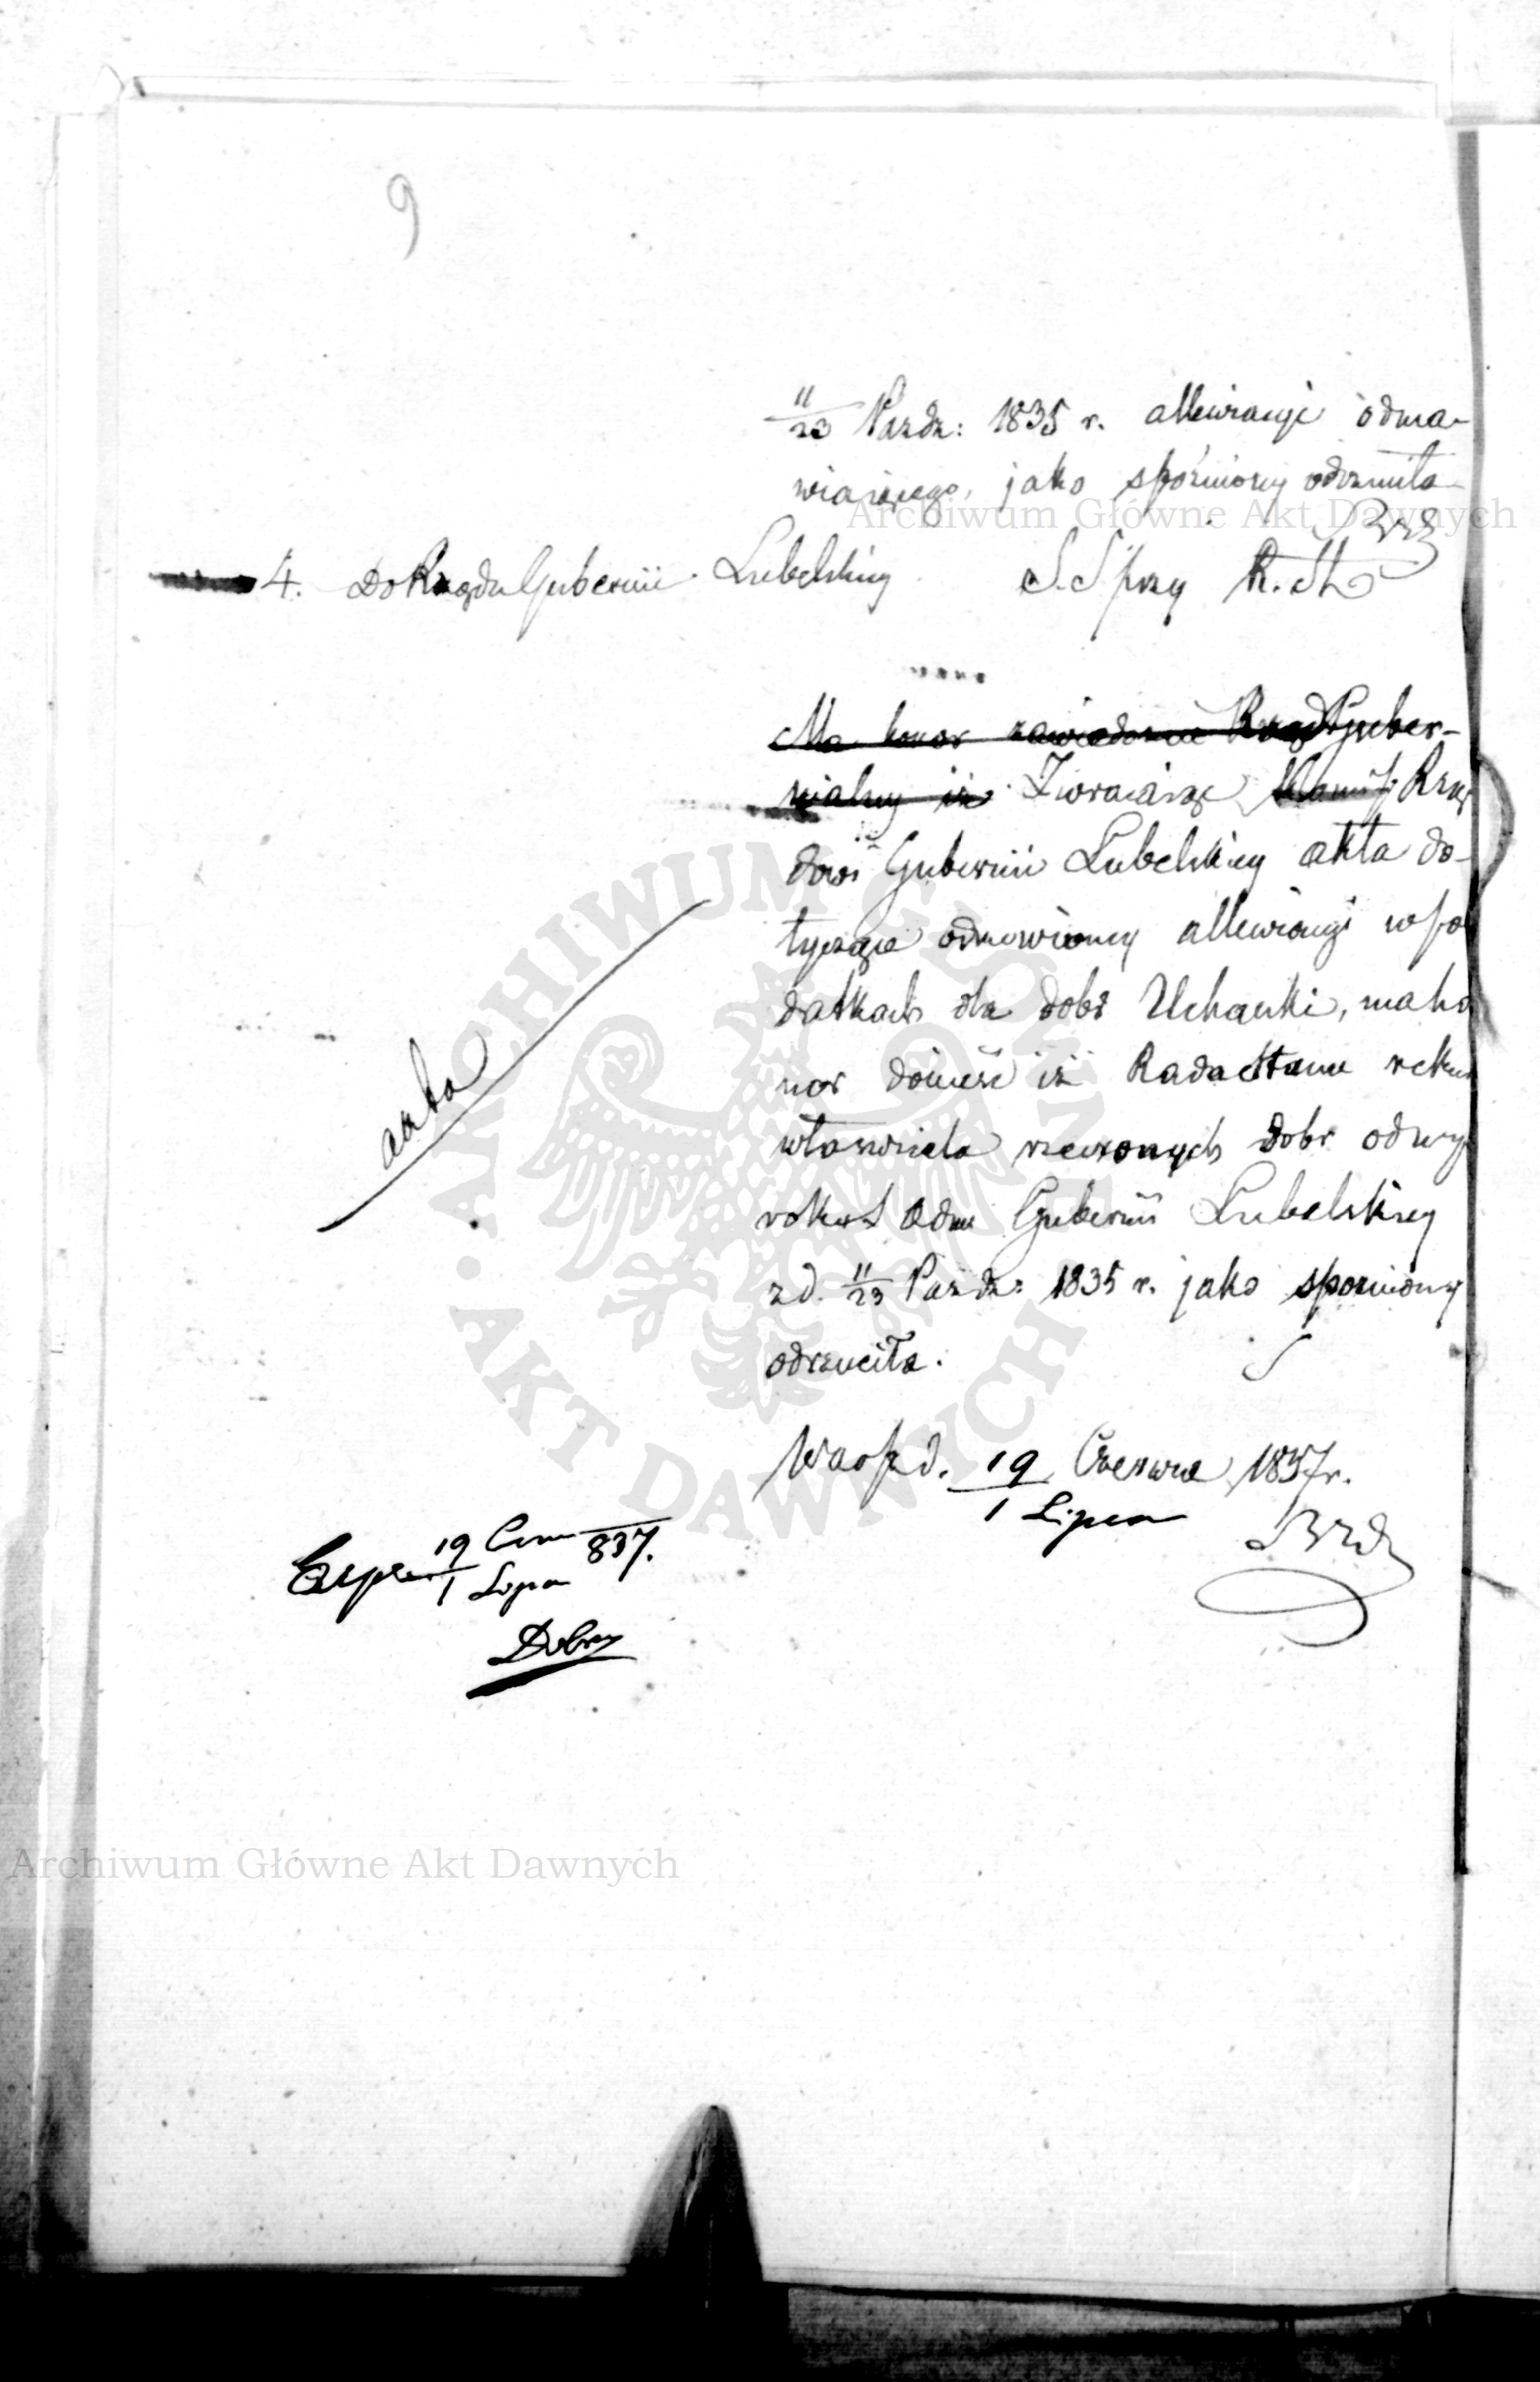 9
11/23 Pazdz: 1835 r. allewiacyi odma-
wiaiącego, jako spóźniony odrzuciła
Archiwum Główne Akt Dawnych
4. Do Rządu Gubernii Lubelskiey S. S. przy R. St.
Ma honor zawiadomić Rząd Guber-
nialny iż Zwracaiąc Rzą
dowi Gubernii Lubelskiey akta do-
tyczące odmowioney allewiacyi w po
datkach dla dobr Uchanki, ma ho
nor donieść iż Rada Stanu rekurs
własciciela rzeczonych dobr od wy
roku S. Adm Gubernii Lubelskiey
z d. 11/23 Pazdz: 1835 r. jako spozniony
odrzuciła.
akta
ARCHIWUM GŁÓWNE AKT DAWNYCH
Warsz d. 19 Czerwca 1837 r.
1 Lipca
Exped 19 Czer 837.
1 Lipca
Archiwum Główne Akt Dawnych